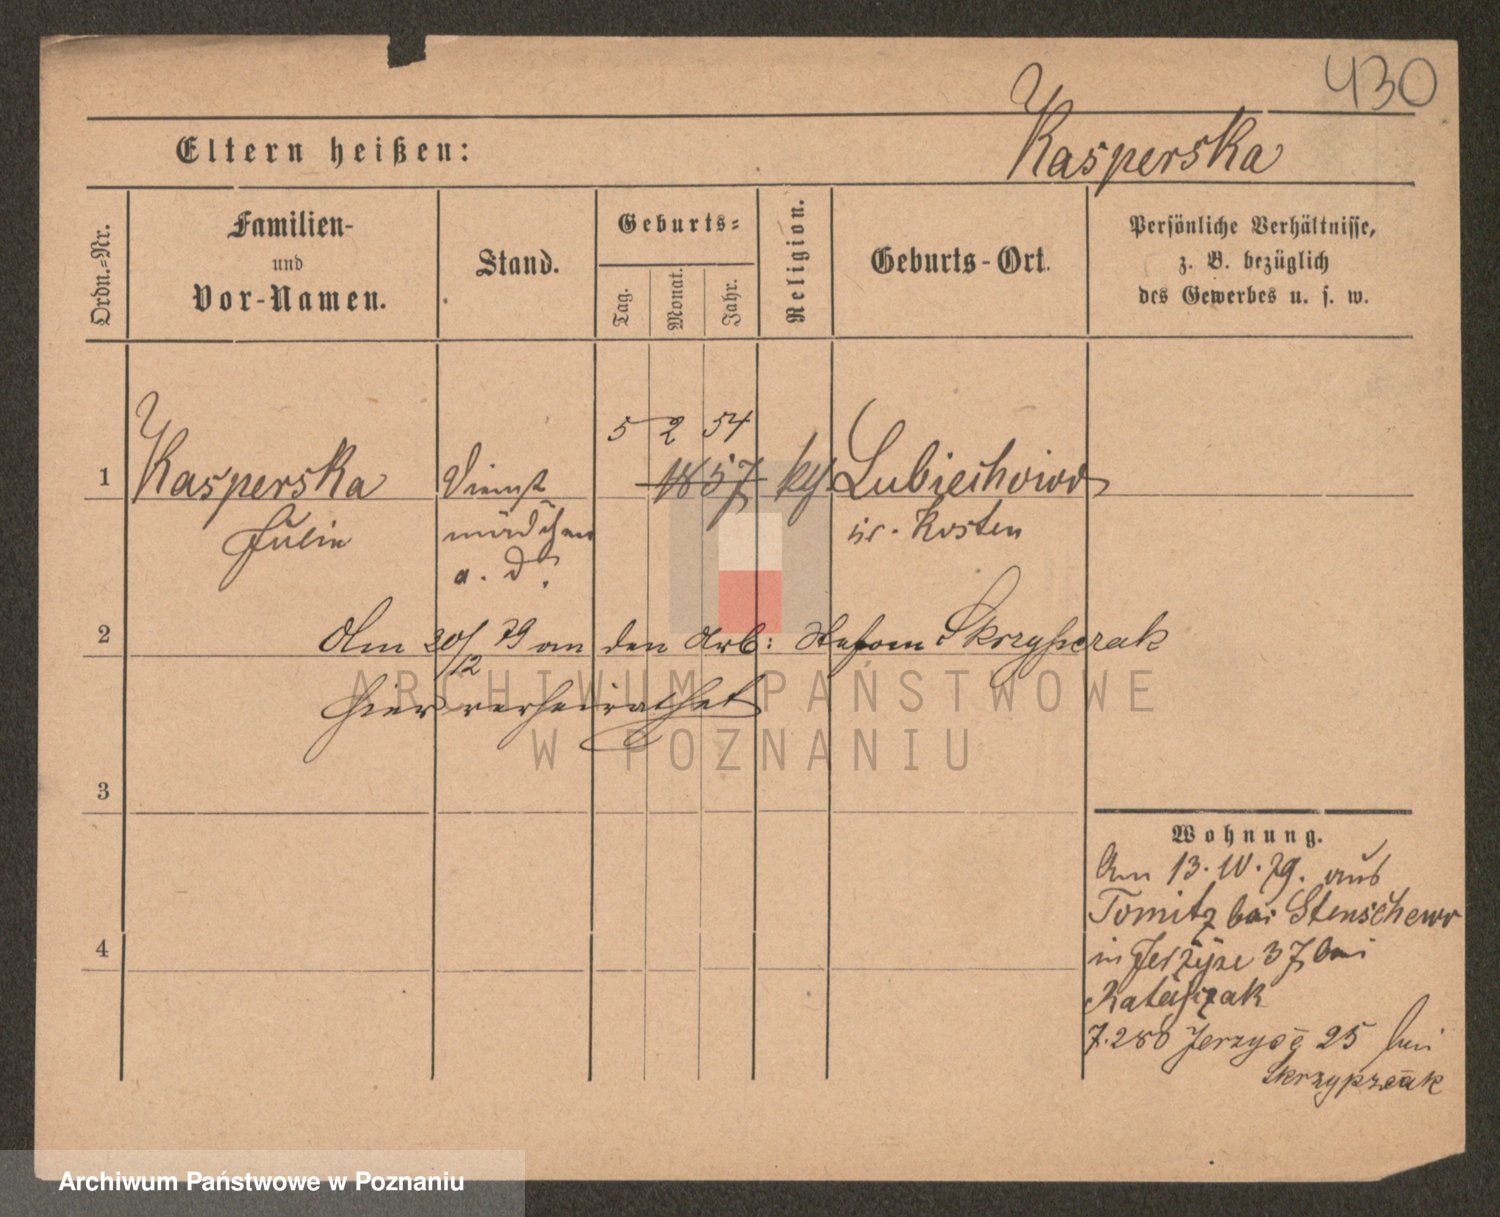 430
Eltern heißen:
Kasperska
Ordn.-Nr.
Familien-
und
Vor-Namen.
Stand.
Geburts-
Tag.
Monat.
Jahr.
Religion.
Geburts-Ort.
Persönliche Verhältnisse,
z. B. bezüglich
des Gewerbes u. s. w.
5 2 54
1 Kasperska Dienst 1857 Lubiechowo
Julie mädchen Kosten
a. d.
2 Am 20/12 79 an den Arb: Stefan Skrzypczak
hier verheirathet
3
Wohnung.
Am 13. IV. 79. aus
Tomitz bei Stenschewo
in Jerzyce 37 bei
Ratajczak
4
7.280 Jerzyce 25 bei
Skrzypczak
ARCHIWUM PAŃSTWOWE
W POZNANIU
Archiwum Państwowe w Poznaniu